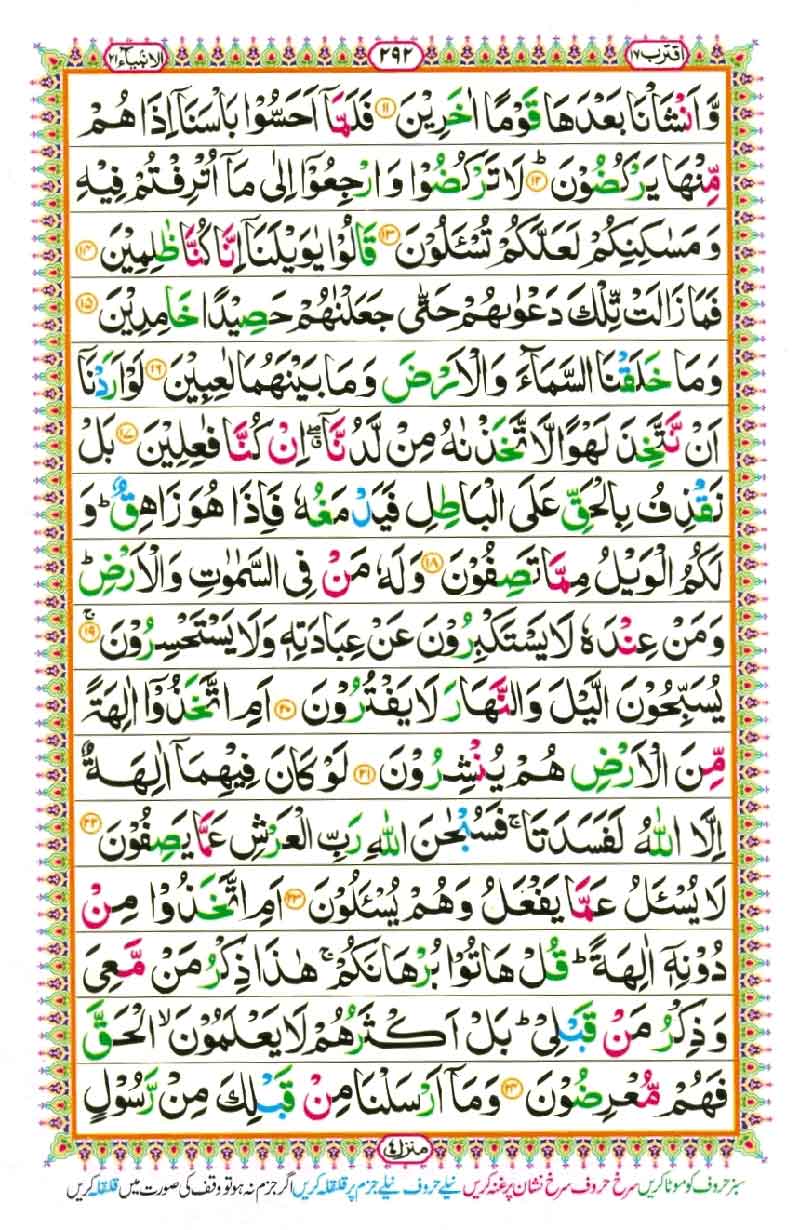 اقترب ۱۷
۲۹۲
الانبیآء ۲۱
وَّاَنْشَاْنَا بَعْدَهَا قَوْمًا اٰخَرِيْنَ ۱۱ فَلَمَّاۤ اَحَسُّوْا بَاْسَنَاۤ اِذَا هُمْ
مِّنْهَا يَرْكُضُوْنَ ؕ ۱۲ لَا تَرْكُضُوْا وَ ارْجِعُوْۤا اِلٰى مَاۤ اُتْرِفْتُمْ فِيْهِ
وَ مَسٰكِنِكُمْ لَعَلَّكُمْ تُسْـَٔلُوْنَ ۱۳ قَالُوْا يٰوَيْلَنَاۤ اِنَّا كُنَّا ظٰلِمِيْنَ ۱۴
فَمَا زَالَتْ تِّلْكَ دَعْوٰىهُمْ حَتّٰى جَعَلْنٰهُمْ حَصِيْدًا خَامِدِيْنَ ۱۵
وَمَا خَلَقْنَا السَّمَآءَ وَالْاَرْضَ وَمَا بَيْنَهُمَا لٰعِبِيْنَ ۱۶ لَوْ اَرَدْنَاۤ
اَنْ نَّتَّخِذَ لَهْوًا لَّاتَّخَذْنٰهُ مِنْ لَّدُنَّاۤ ۖۗ اِنْ كُنَّا فٰعِلِيْنَ ۱۷ بَلْ
نَقْذِفُ بِالْحَقِّ عَلَى الْبَاطِلِ فَيَدْمَغُهٗ فَاِذَا هُوَ زَاهِقٌ ؕ وَ
لَكُمُ الْوَيْلُ مِمَّا تَصِفُوْنَ ۱۸ وَلَهٗ مَنْ فِى السَّمٰوٰتِ وَالْاَرْضِ ؕ
وَمَنْ عِنْدَهٗ لَا يَسْتَكْبِرُوْنَ عَنْ عِبَادَتِهٖ وَلَا يَسْتَحْسِرُوْنَ ۚ ۱۹
يُسَبِّحُوْنَ الَّيْلَ وَالنَّهَارَ لَا يَفْتُرُوْنَ ۲۰ اَمِ اتَّخَذُوْۤا اٰلِهَةً
مِّنَ الْاَرْضِ هُمْ يُنْشِرُوْنَ ۲۱ لَوْ كَانَ فِيْهِمَاۤ اٰلِهَةٌ
اِلَّا اللّٰهُ لَفَسَدَتَا ۚ فَسُبْحٰنَ اللّٰهِ رَبِّ الْعَرْشِ عَمَّا يَصِفُوْنَ ۲۲
لَا يُسْـَٔلُ عَمَّا يَفْعَلُ وَهُمْ يُسْـَٔلُوْنَ ۲۳ اَمِ اتَّخَذُوْا مِنْ
دُوْنِهٖۤ اٰلِهَةً ؕ قُلْ هَاتُوْا بُرْهَانَكُمْ ۚ هٰذَا ذِكْرُ مَنْ مَّعِىَ
وَذِكْرُ مَنْ قَبْلِىْ ؕ بَلْ اَكْثَرُهُمْ لَا يَعْلَمُوْنَ ۙ الْحَقَّ
فَهُمْ مُّعْرِضُوْنَ ۲۴ وَمَاۤ اَرْسَلْنَا مِنْ قَبْلِكَ مِنْ رَّسُوْلٍ
منزل ۴
سبز حروف کو موٹا کریں سرخ حروف سرخ نشان پر غنہ کریں نیلے حروف نیلے جزم پر قلقلہ کریں اگر جزم نہ ہو تو وقف کی صورت میں قلقلہ کریں